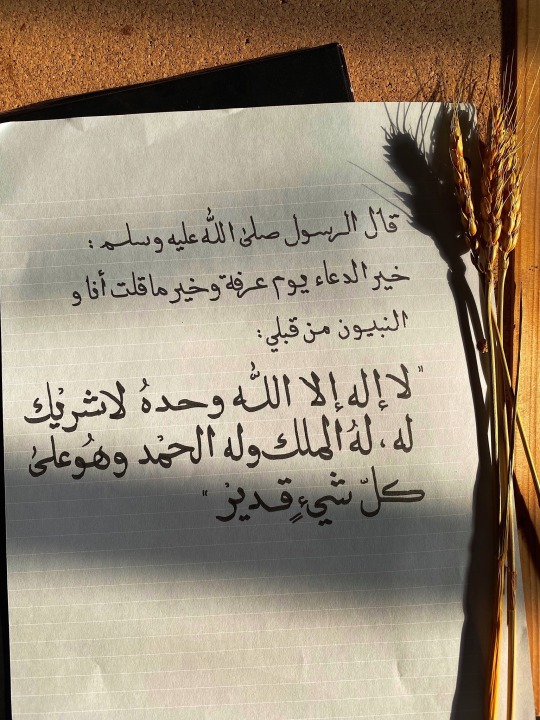 قال الرسول صلى الله عليه وسلم :
خير الدعاء يوم عرفة وخير ما قلت أنا و
النبيون من قبلي:
"لا إله إلا اللّٰه وحدهُ لاشريْك
له، لهُ الملك وله الحمْد وهُو علىٰ
كلّ شيءٍ قديرْ "